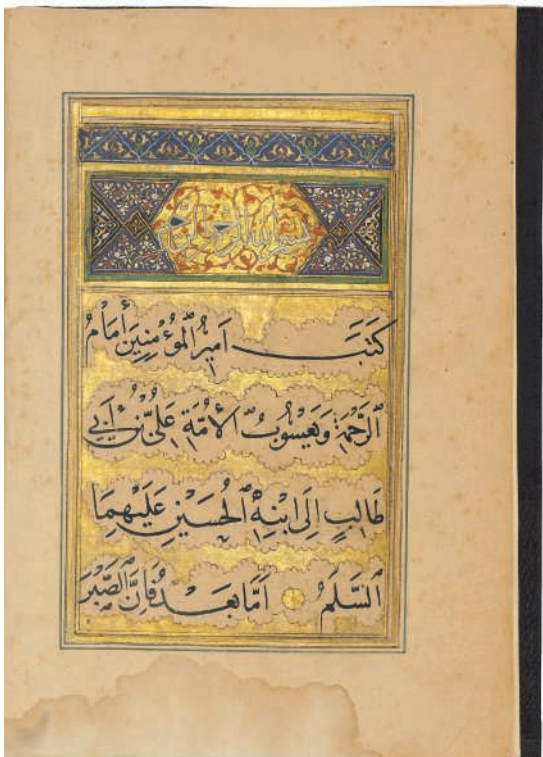 بسم الله الرحمن الرحيم
كَتَبَ اَمِيرُ الْمُؤْمِنِينَ أَمَامُ
الرَّحْمَةِ وَيَعْسُوبُ الْأُمَّةِ عَلِىُّ بْنُ أَبِي
طَالِبٍ اِلَى ابْنِهِ الْحُسَيْنِ عَلَيْهِمَا
السَّلَمُ اَمَّا بَعْدُ فَاِنَّ الصَّبْرَ